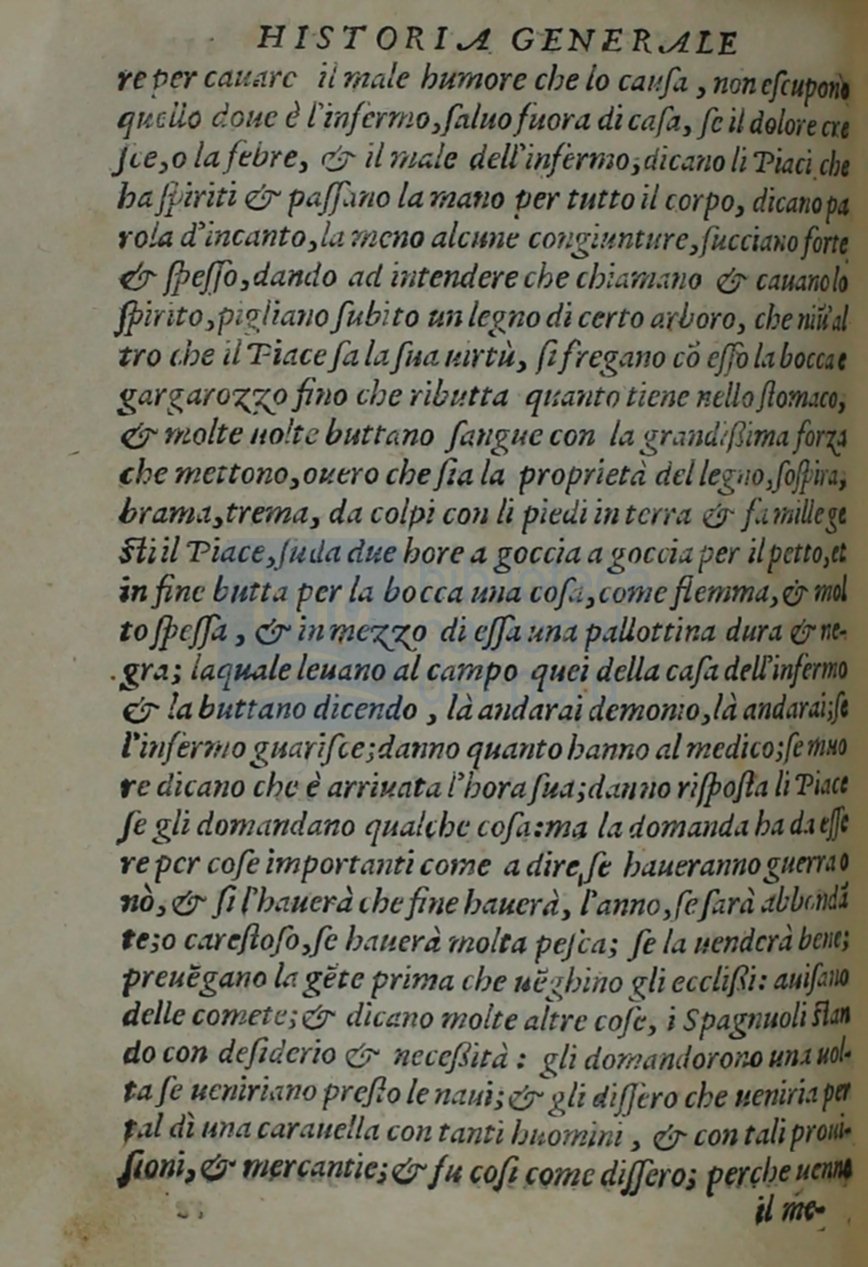 HISTORIA GENERALE
re per cauare il male humore che lo cauſa, non eſcupono
quello doue è l'infermo, ſaluo fuora di caſa, ſe il dolore cre
ſce, o la febre, & il male dell'infermo, dicano li Piaci che
ha ſpiriti & paſſano la mano per tutto il corpo, dicano pa
rola d'incanto, la meno alcune congiunture, ſucciano forte
& ſpeſſo, dando ad intendere che chiamano & cauano lo
ſpirito, pigliano ſubito un legno di certo arboro, che niũ al
tro che il Piace ſa la ſua uirtù, ſi fregano cõ eſſo la bocca e
gargarozzo fino che ributta quanto tiene nello ſtomaco,
& molte uolte buttano ſangue con la grandißima forza
che mettono, ouero che ſia la proprietà del legno, ſoſpira,
brama, trema, da colpi con li piedi in terra & fa mille ge
ſti il Piace, ſuda due hore a goccia a goccia per il petto, et
in fine butta per la bocca una coſa, come flemma, & mol
to ſpeſſa, & in mezzo di eſſa una pallottina dura & ne-
gra; laquale leuano al campo quei della caſa dell'infermo
& la buttano dicendo, là andarai demonio, là andarai; ſe
l'infermo guariſce; danno quanto hanno al medico; ſe muo
re dicano che è arriuata l'hora ſua; danno riſpoſta li Piace
ſe gli domandano qualche coſa: ma la domanda ha da eſſe
re per coſe importanti come a dire, ſe haueranno guerra o
nò, & ſi l'hauerà che fine hauerà, l'anno, ſe ſarà abbondã
te; o careſtoſo, ſe hauerà molta peſca; ſe la uenderà bene;
preuẽgano la gẽte prima che uẽghino gli ecclißi: auiſano
delle comete; & dicano molte altre coſe, i Spagnuoli ſtan
do con deſiderio & neceßità: gli domandorono una uol-
ta ſe ueniriano preſto le naui; & gli diſſero che ueniria per
tal dì una carauella con tanti huomini, & con tali proui-
ſioni, & mercantie; & fu coſi come diſſero; perche uenne
il me-